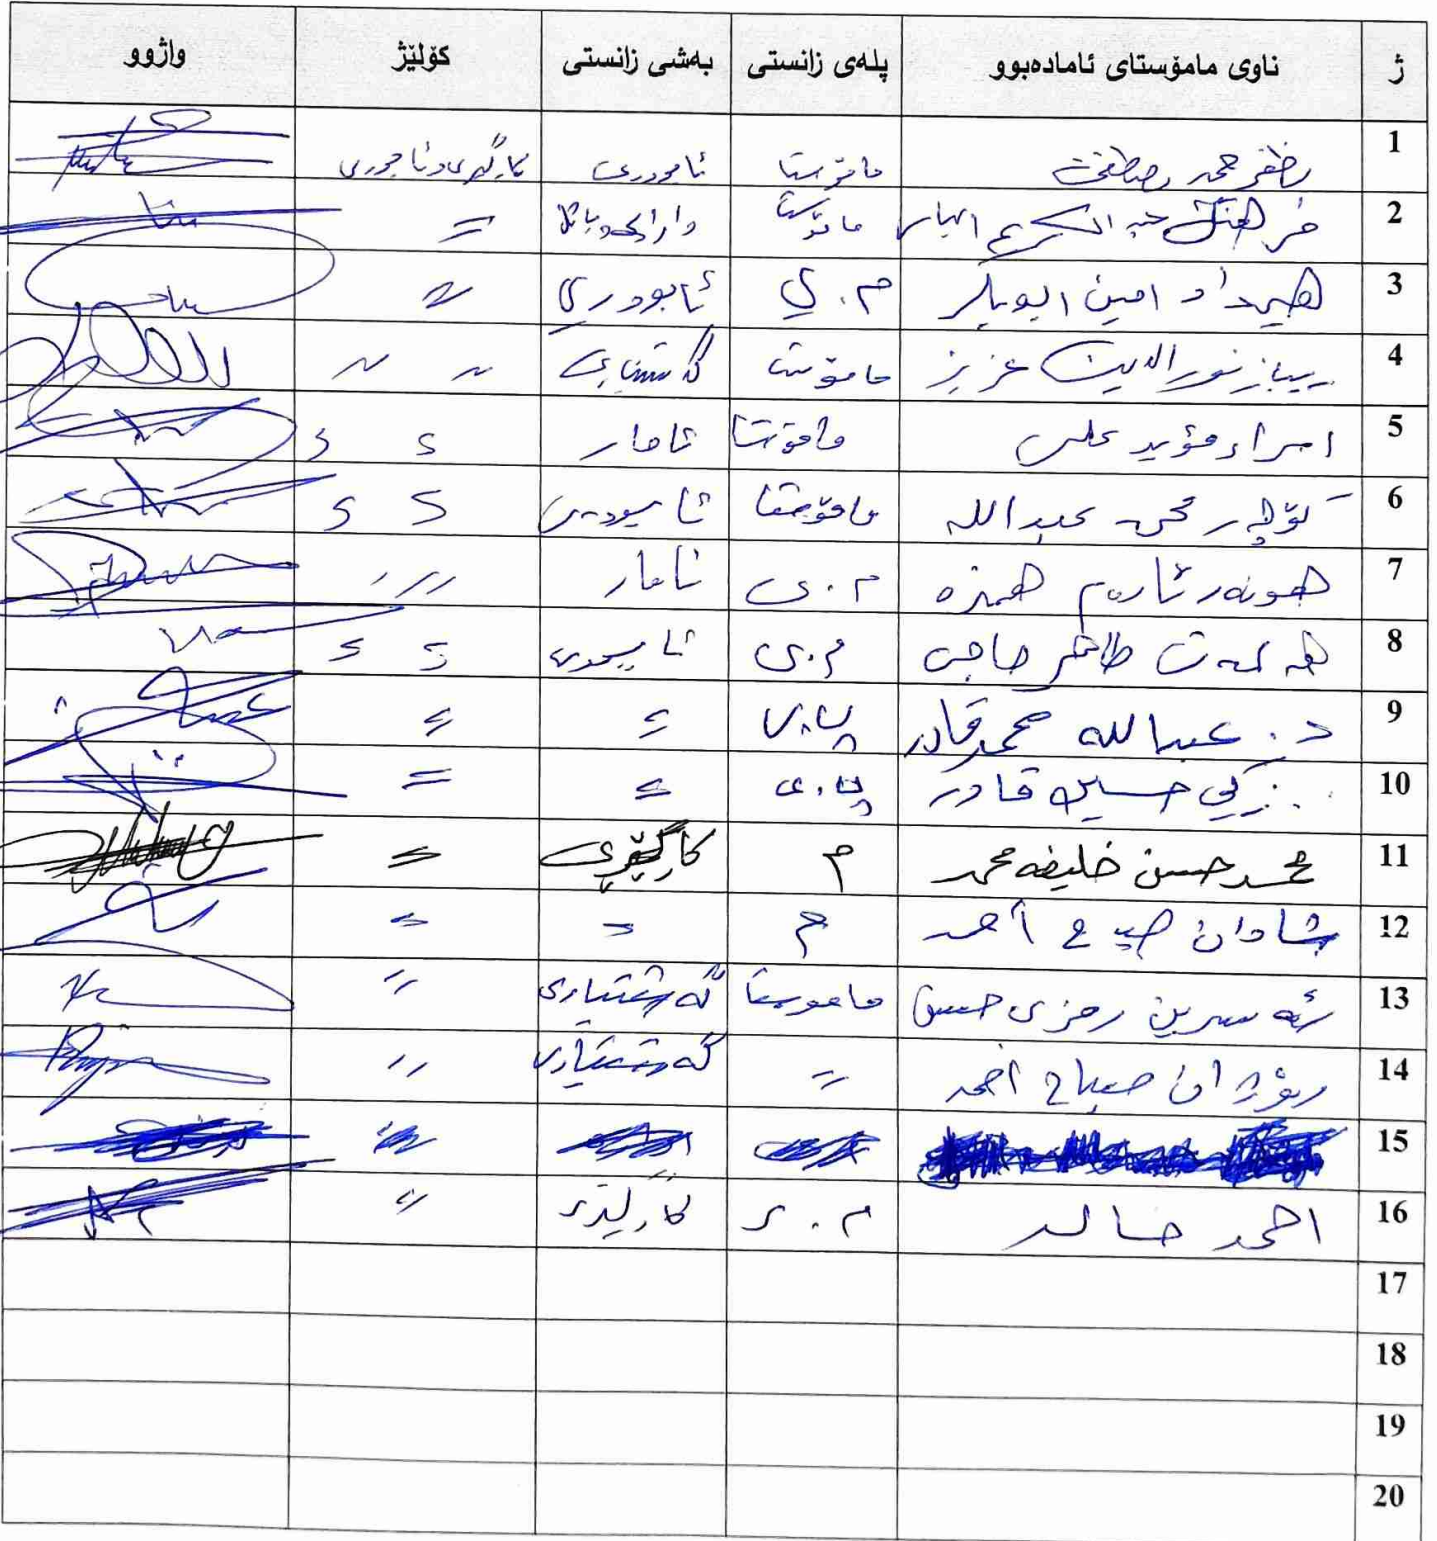 ژ ناوی مامۆستای ئامادەبوو پلەی زانستی بەشی زانستی کۆلێژ واژوو
1 مظفر محمد مصطفی مامۆستا ئابووری کارگێری و ئابووری
2 فرهنگ عبدالكريم مامۆستا دارایی و بانک =
3 هيمداد امين ابوبكر م.ی ئابووری "
4 ريباز نورالدين عزيز مامۆستا گەشتیاری " "
5 اسراء مؤيد علی مامۆستا ئامار " "
6 عبدالله مامۆستا ئابووری " "
7 هونەر ئارام همزه م.ی ئامار "
8 طاهر حاجی م.ی ئابووری " "
9 د. عبدالله محمد قادر پ.ی = =
10 زكي حسين قادر پ.ی = =
11 محمد حسن خليفه محمد م کارگێری =
12 شادان صباح أحمد م = =
13 نەسرین رمزی حسن مامۆستا گەشتیاری "
14 رۆژان صباح احمد " گەشتیاری "
15
16 احمد خالد م.ی کارگێری "
17
18
19
20